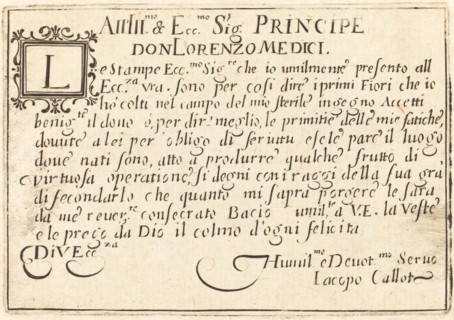 All Ill.mo & Ecc.mo Sig. PRINCIPE
DON LORENZO MEDICI.
Le Stampe Ecc.mo Sig.re che io umilmente presento all
Ecc.za vra. sono per cosi dire i primi Fiori che io
hò colti nel campo del mio sterile ingegno Accetti
benig.te il dono ò, per dir meglio, le primitie delle mie fatiche,
douute a lei per obligo di seruitu e se le pare il luogo
doue nati sono, atto a produrre qualche frutto di
virtuosa operatione, si degni con i raggi della sua gra.
di fecondarlo che quanto mi saprà porgere le sarà
da me reuer.te consecrato Bacio umil.te a V.E. la Veste
e le prego da Dio il colmo d'ogni felicita
Di V. Ecc.za
Humil.mo e Deuot.mo Seruo
Iacopo Callot